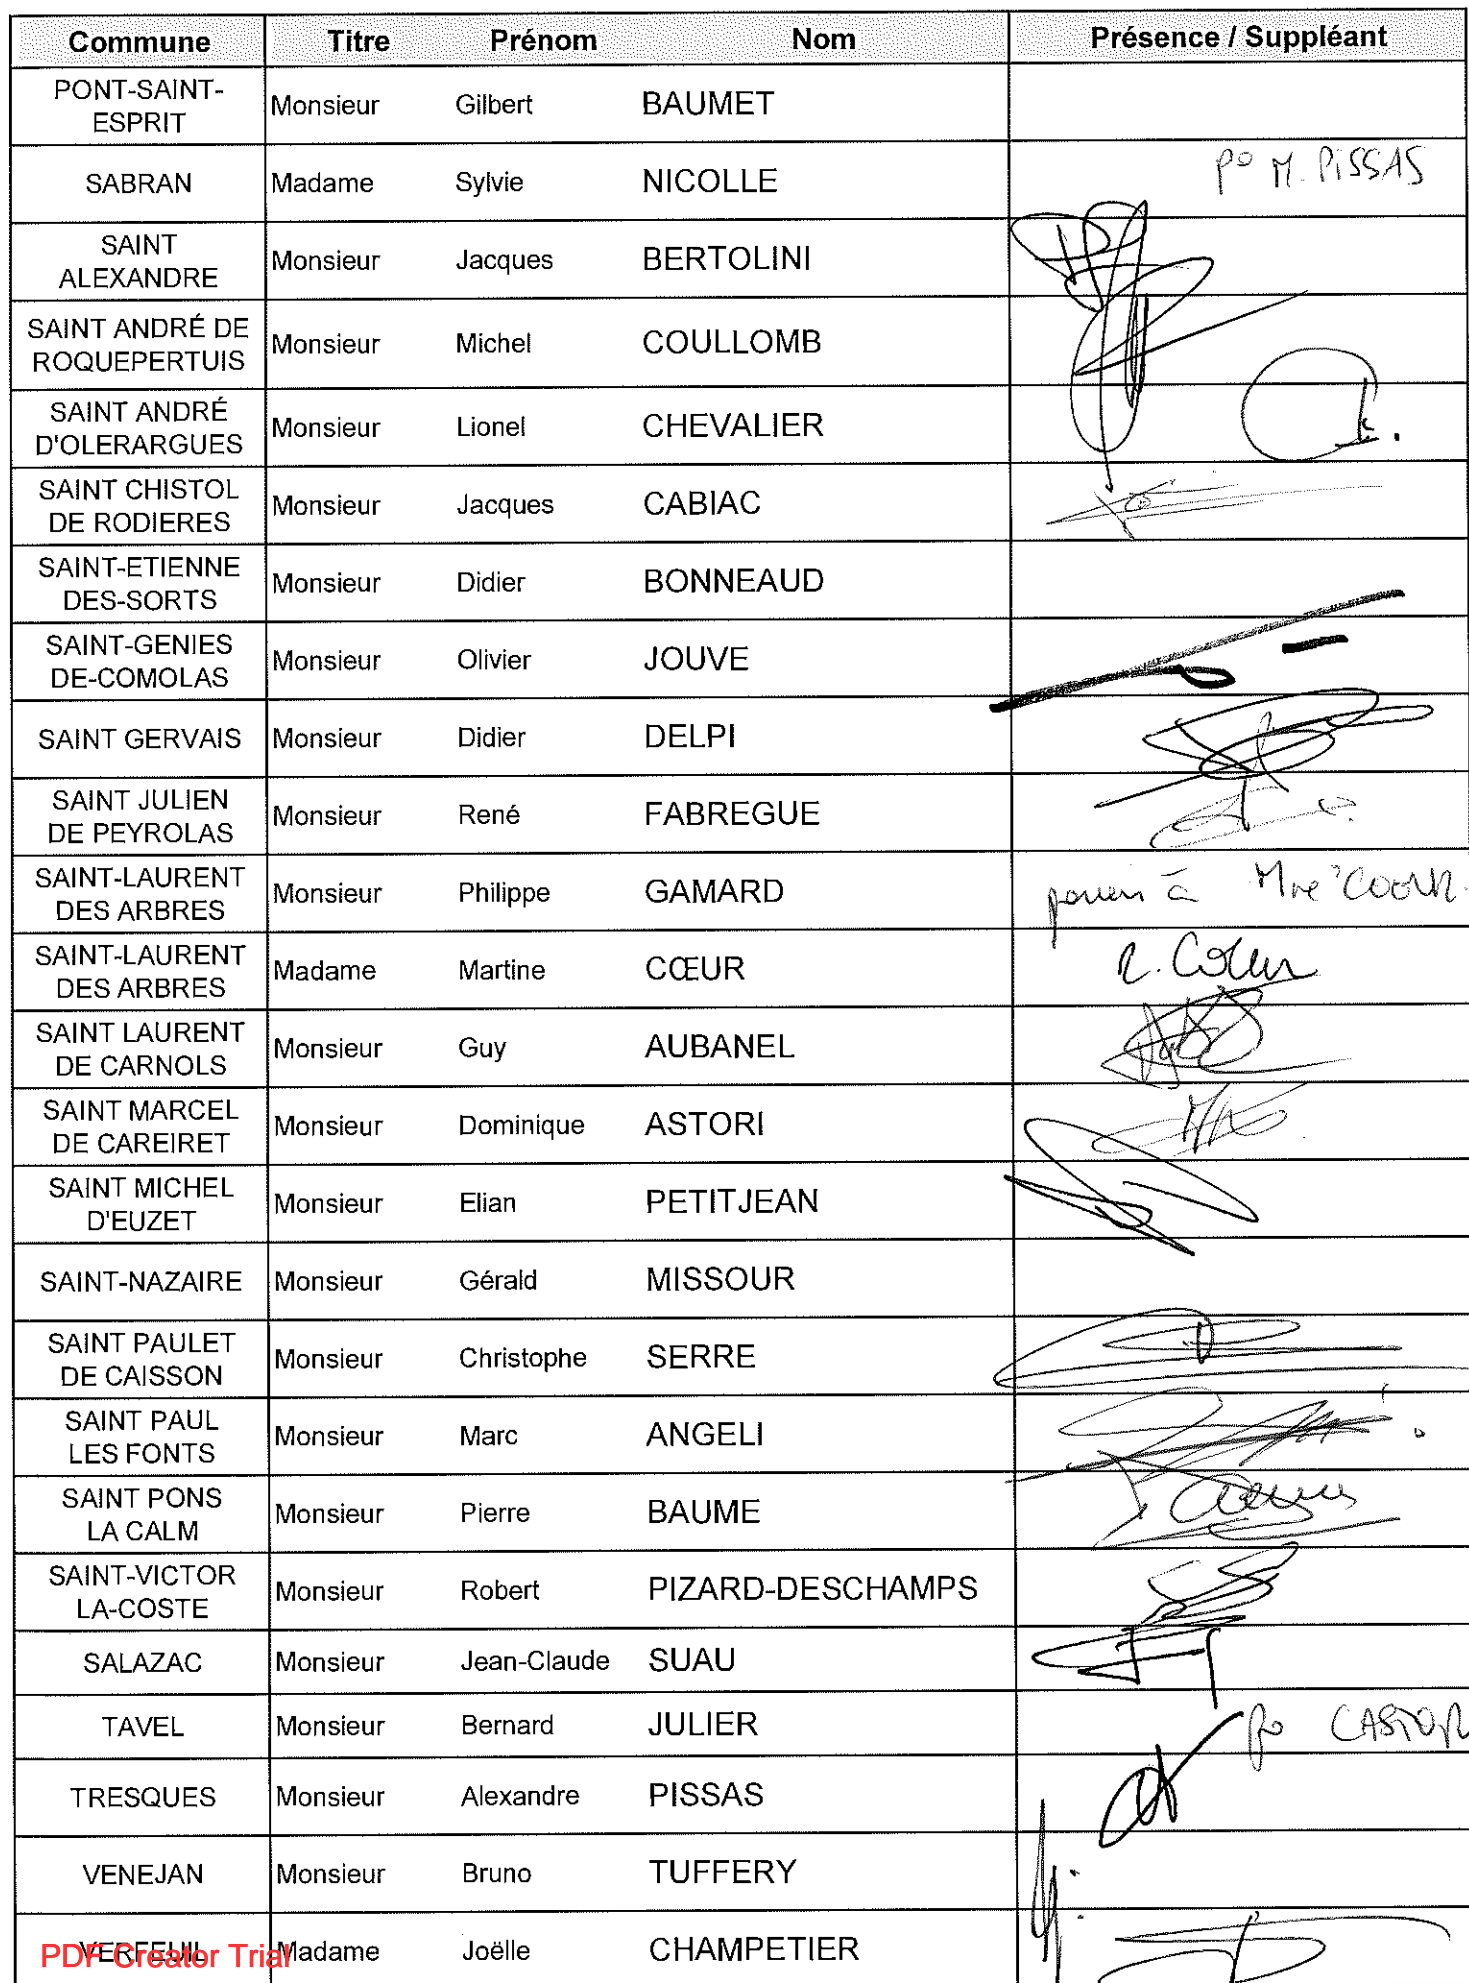 Commune Titre Prénom Nom Présence / Suppléant
PONT-SAINT-
ESPRIT Monsieur Gilbert BAUMET
SABRAN Madame Sylvie NICOLLE po M. PISSAS
SAINT
ALEXANDRE Monsieur Jacques BERTOLINI
SAINT ANDRÉ DE
ROQUEPERTUIS Monsieur Michel COULLOMB
SAINT ANDRÉ
D'OLERARGUES Monsieur Lionel CHEVALIER
SAINT CHISTOL
DE RODIERES Monsieur Jacques CABIAC
SAINT-ETIENNE
DES-SORTS Monsieur Didier BONNEAUD
SAINT-GENIES
DE-COMOLAS Monsieur Olivier JOUVE
SAINT GERVAIS Monsieur Didier DELPI
SAINT JULIEN
DE PEYROLAS Monsieur René FABREGUE
SAINT-LAURENT
DES ARBRES Monsieur Philippe GAMARD à
SAINT-LAURENT
DES ARBRES Madame Martine CŒUR
SAINT LAURENT
DE CARNOLS Monsieur Guy AUBANEL
SAINT MARCEL
DE CAREIRET Monsieur Dominique ASTORI
SAINT MICHEL
D'EUZET Monsieur Elian PETITJEAN
SAINT-NAZAIRE Monsieur Gérald MISSOUR
SAINT PAULET
DE CAISSON Monsieur Christophe SERRE
SAINT PAUL
LES FONTS Monsieur Marc ANGELI
SAINT PONS
LA CALM Monsieur Pierre BAUME
SAINT-VICTOR
LA-COSTE Monsieur Robert PIZARD-DESCHAMPS
SALAZAC Monsieur Jean-Claude SUAU
TAVEL Monsieur Bernard JULIER po CASTOR
TRESQUES Monsieur Alexandre PISSAS
VENEJAN Monsieur Bruno TUFFERY
VERFEUIL Madame Joëlle CHAMPETIER
PDF Creator Trial